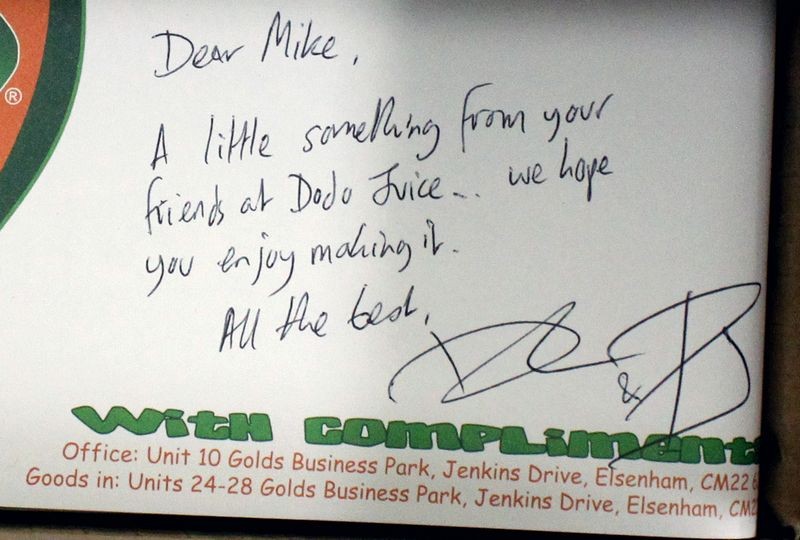 ®
Dear Mike,
A little something from your
friends at Dodo Juice... we hope
you enjoy making it.
All the best,
&
With Compliment
Office: Unit 10 Golds Business Park, Jenkins Drive, Elsenham, CM22
Goods in: Units 24-28 Golds Business Park, Jenkins Drive, Elsenham,